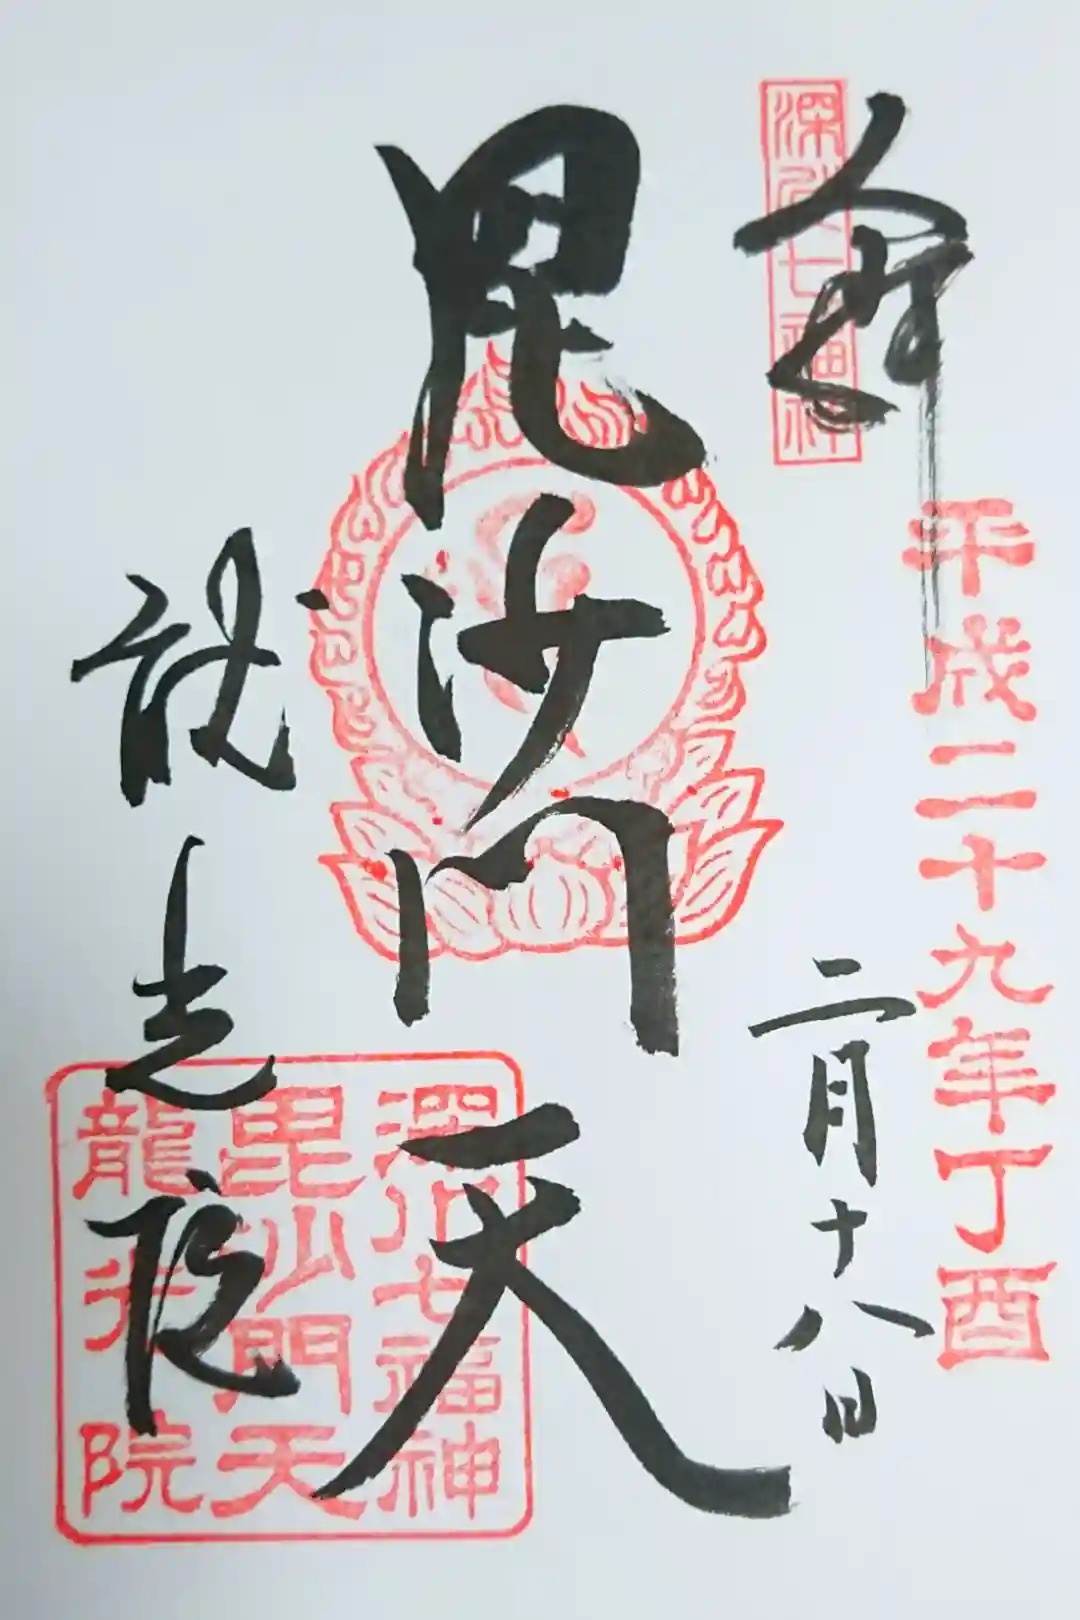 奉拝
深川七福神
平成二十九年丁酉
二月十八日
毘沙門天
龍光院
深川七福神
毘沙門天
龍光院